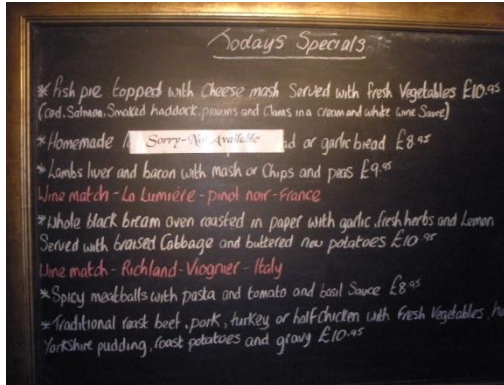 Todays Specials
*Fish pie topped with Cheese mash Served with Fresh Vegetables £10.95
(cod, Salmon, Smoked haddock, prawns and Clams in a cream and white wine Sauce)
*Homemade Sorry-Not Available or garlic bread £8.95
*Lambs liver and bacon with mash or Chips and peas £9.95
Wine match - La Lumière - pinot noir - France
*Whole black bream oven roasted in paper with garlic, fresh herbs and Lemon
Served with braised Cabbage and buttered new potatoes £10.95
Wine match - Richland - Viognier - Italy
*Spicy meatballs with pasta and tomato and basil Sauce £8.95
*Traditional roast beef, pork, turkey or half chicken with Fresh Vegetables,
Yorkshire pudding, roast potatoes and gravy £10.95